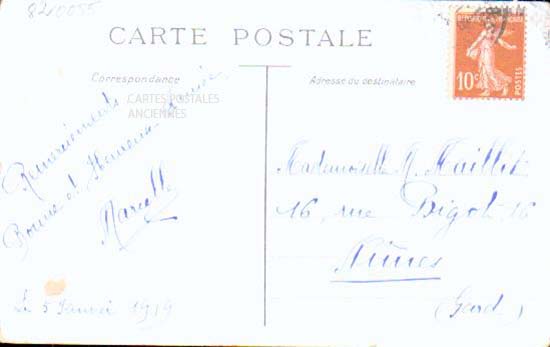 8210055
CARTE POSTALE
REPUBLIQUE FRANÇAISE
10c
POSTES
Correspondance
Adresse du destinataire
CARTES POSTALES
ANCIENNES
Remerciements
Bonne et Heureuse année
Marcelle
Le 5 Janvier 1914
Mademoiselle M. Maillet
16, rue Bigot, 16
Nîmes
(Gard)